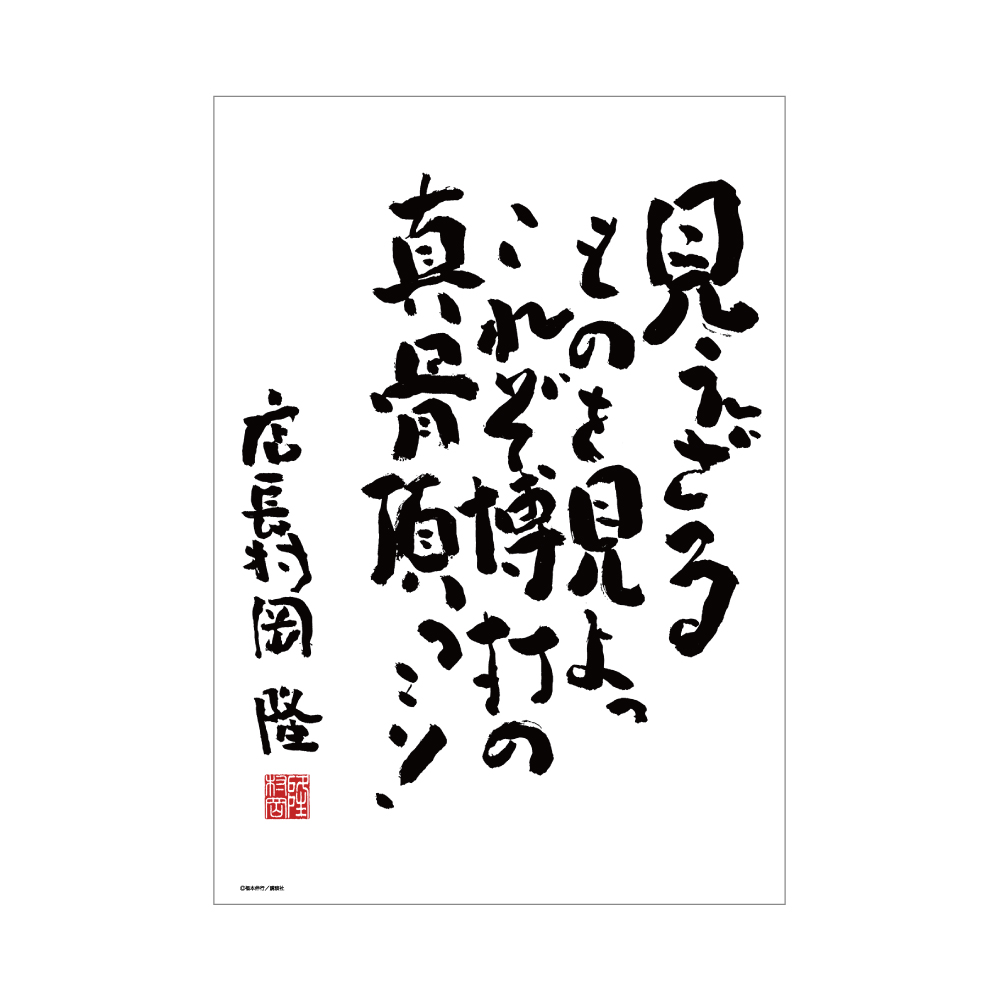 見えざる
ものを見よっ
これぞ博打の
真骨頂っ…!
店長村岡 隆
©福本伸行/講談社